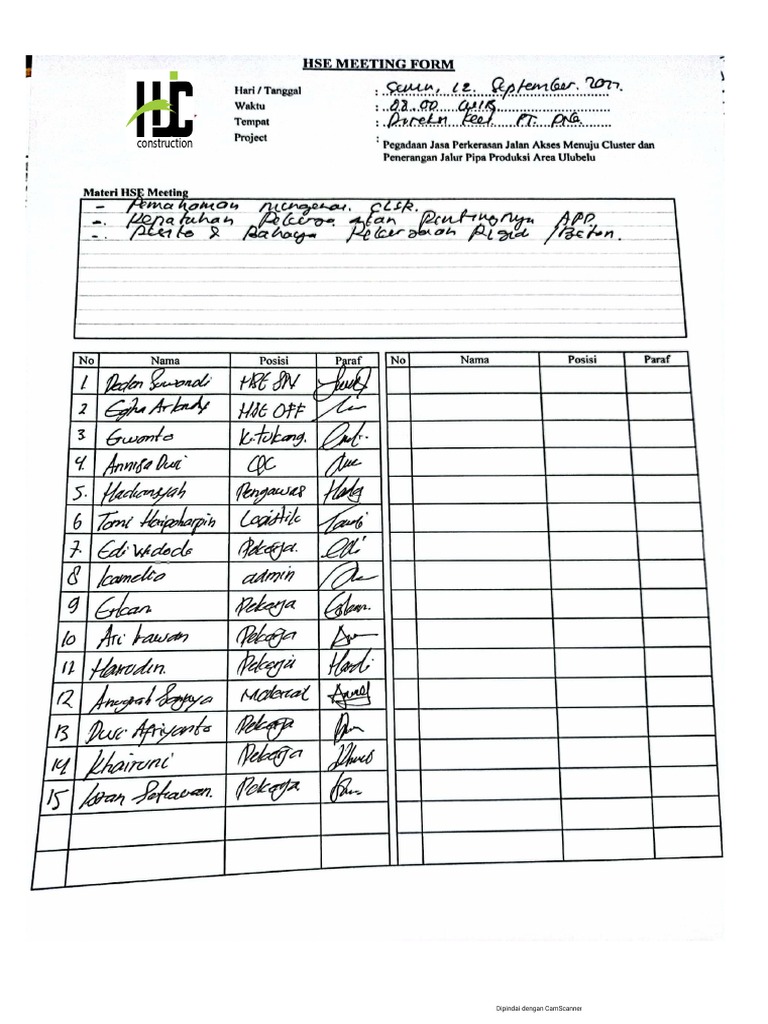 HSE MEETING FORM
HJC
construction
Hari / Tanggal : Senin, 12 September 2022
Waktu : 08.00 WIB
Tempat : PT. PNG
Project : Pegadaan Jasa Perkerasan Jalan Akses Menuju Cluster dan
Penerangan Jalur Pipa Produksi Area Ulubelu
Materi HSE Meeting
- Pemahaman mengenai
-. Kepatuhan Pekerja akan Pentingnya APD
-. & Bahaya Pekerjaan Rigid / Beton.
No Nama Posisi Paraf No Nama Posisi Paraf
1 Deden Suwandi HSE SPV
2 Egha HSE OFF
3 Gwanto K. Tukang.
4. Annisa Dwi QC
5. Hadiansyah Pengawas
6 Tomi Logistik
7. Edi Widodo Pekerja.
8 Kamelia admin
9 Erlan Pekerja
10 Ari Irawan Pekerja
11 Hairudin. Pekerja
12 Anugrah Material
13 Dwi Apriyanto Pekerja
14 Khairuni Pekerja
15 Iwan Setiawan. Pekerja
Dipindai dengan CamScanner